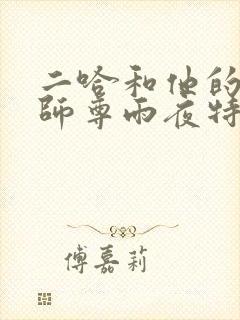 二哈和他的
師尊雨夜特
傅嘉莉